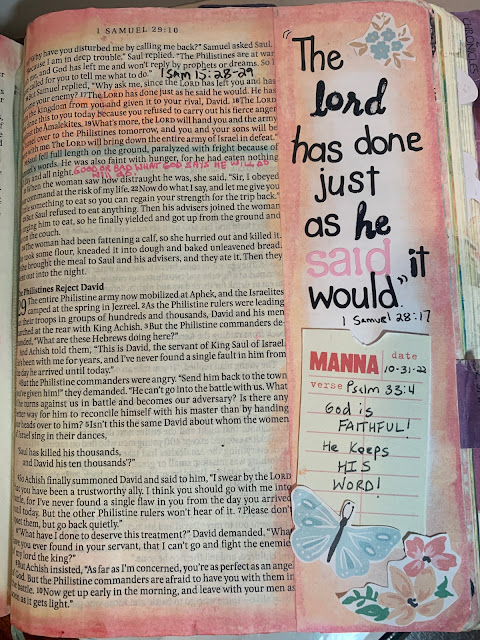 1 SAMUEL 29:10
"Why have you disturbed me by calling me back?" Samuel asked Saul.
"Because I am in deep trouble," Saul replied. "The Philistines are at war
me, and God has left me and won't reply by prophets or dreams. So I
called for you to tell me what to do."
1 SAM 15:28-29
Samuel replied, "Why ask me, since the LORD has left you and has
your enemy? 17The LORD has done just as he said he would. He has
the kingdom from you and given it to your rival, David. 18The LORD
done this to you today because you refused to carry out his fierce anger
the Amalekites. 19What's more, the LORD will hand you and the army
over to the Philistines tomorrow, and you and your sons will be
with me. The LORD will bring down the entire army of Israel in defeat."
Saul fell full length on the ground, paralyzed with fright because of
words. He was also faint with hunger, for he had eaten nothing
day and all night.
GOOD OR BAD WHAT GOD SAYS HE WILL DO
When the woman saw how distraught he was, she said, "Sir, I obeyed
command at the risk of my life. 22Now do what I say, and let me give you
something to eat so you can regain your strength for the trip back."
But Saul refused to eat anything. Then his advisers joined the woman
urging him to eat, so he finally yielded and got up from the ground and
on the couch.
The woman had been fattening a calf, so she hurried out and killed it.
took some flour, kneaded it into dough and baked unleavened bread.
she brought the meal to Saul and his advisers, and they ate it. Then they
out into the night.
The Philistines Reject David
29 The entire Philistine army now mobilized at Aphek, and the Israelites
camped at the spring in Jezreel. 2As the Philistine rulers were leading
their troops in groups of hundreds and thousands, David and his men
marched at the rear with King Achish. 3But the Philistine commanders de-
manded, "What are these Hebrews doing here?"
And Achish told them, "This is David, the servant of King Saul of Israel.
been with me for years, and I've never found a single fault in him from
the day he arrived until today."
4But the Philistine commanders were angry. "Send him back to the town
given him!" they demanded. "He can't go into the battle with us. What
he turns against us in battle and becomes our adversary? Is there any
better way for him to reconcile himself with his master than by handing
our heads over to him? 5Isn't this the same David about whom the women
Israel sing in their dances,
'Saul has killed his thousands,
and David his ten thousands'?"
6So Achish finally summoned David and said to him, "I swear by the LORD
that you have been a trustworthy ally. I think you should go with me into
battle, for I've never found a single flaw in you from the day you arrived
until today. But the other Philistine rulers won't hear of it. 7Please don't
upset them, but go back quietly."
"What have I done to deserve this treatment?" David demanded. "What
have you ever found in your servant, that I can't go and fight the enemies
my lord the king?"
But Achish insisted, "As far as I'm concerned, you're as perfect as an angel
of God. But the Philistine commanders are afraid to have you with them in
the battle. 10Now get up early in the morning, and leave with your men as
soon as it gets light."
"The
lord
has done
just
as he
said it
would."
1 Samuel 28:17
MANNA date
10-31-22
verse Psalm 33:4
God is
FAITHFUL!
He Keeps
HIS
WORD!
CHRONICLES